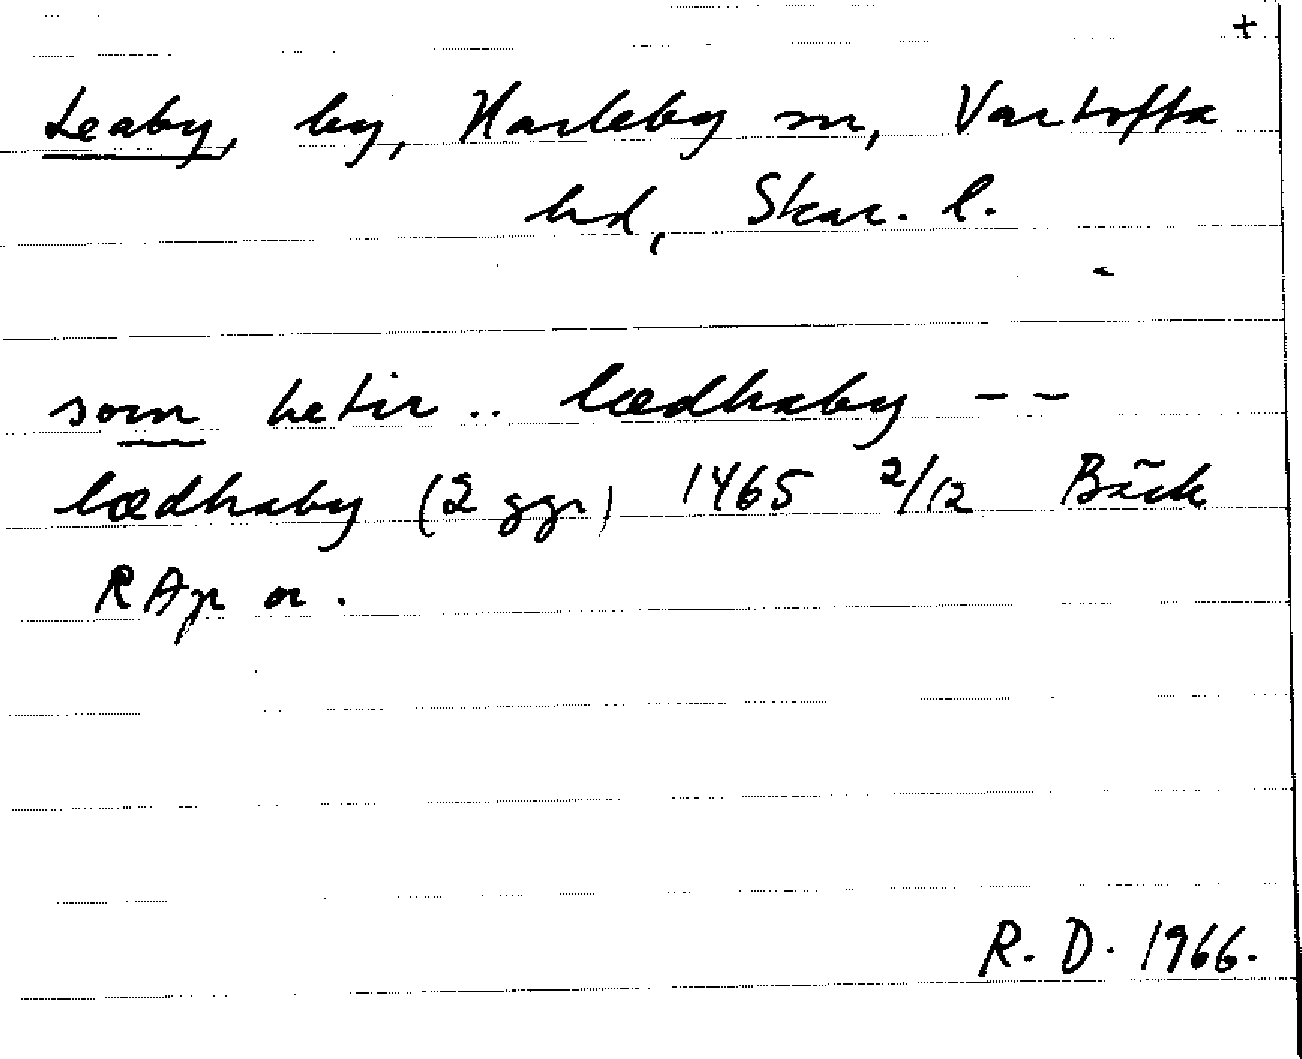 +
Leaby, by, Karleby sn, Vartofta
hd, Skar. l.
som hetir .. lædhaby - -
lædhaby (2 ggr) 1465 2/12 Bäck
RAp or.
R. D. 1966.